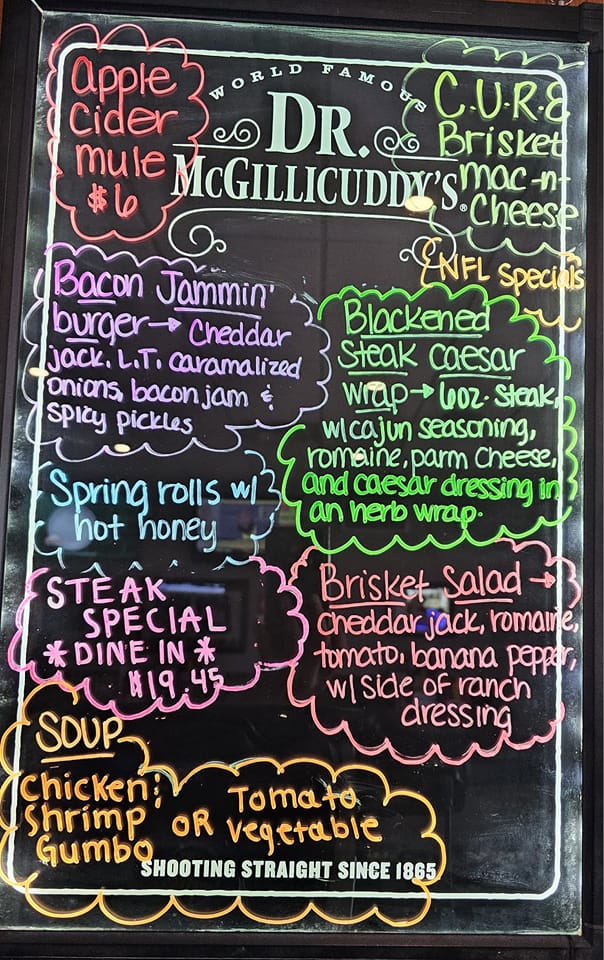 Apple
Cider
mule
$6
WORLD FAMOUS
DR.
McGILLICUDDY'S®
C.U.R.E
Brisket
mac-n-
Cheese
NFL Specials
Bacon Jammin'
burger → Cheddar
jack, L.T. caramalized
onions, bacon jam &
spicy pickles
Blackened
Steak caesar
wrap → 6oz. steak,
w/cajun seasoning,
romaine, parm cheese,
and caesar dressing in
an herb wrap.
Spring rolls w/
hot honey
STEAK
SPECIAL
*DINE IN*
$19.45
Brisket Salad →
cheddar jack, romaine,
tomato, banana pepper,
w/side of ranch
dressing
SOUP
Chicken &
Shrimp
Gumbo
OR
Tomato
Vegetable
SHOOTING STRAIGHT SINCE 1865